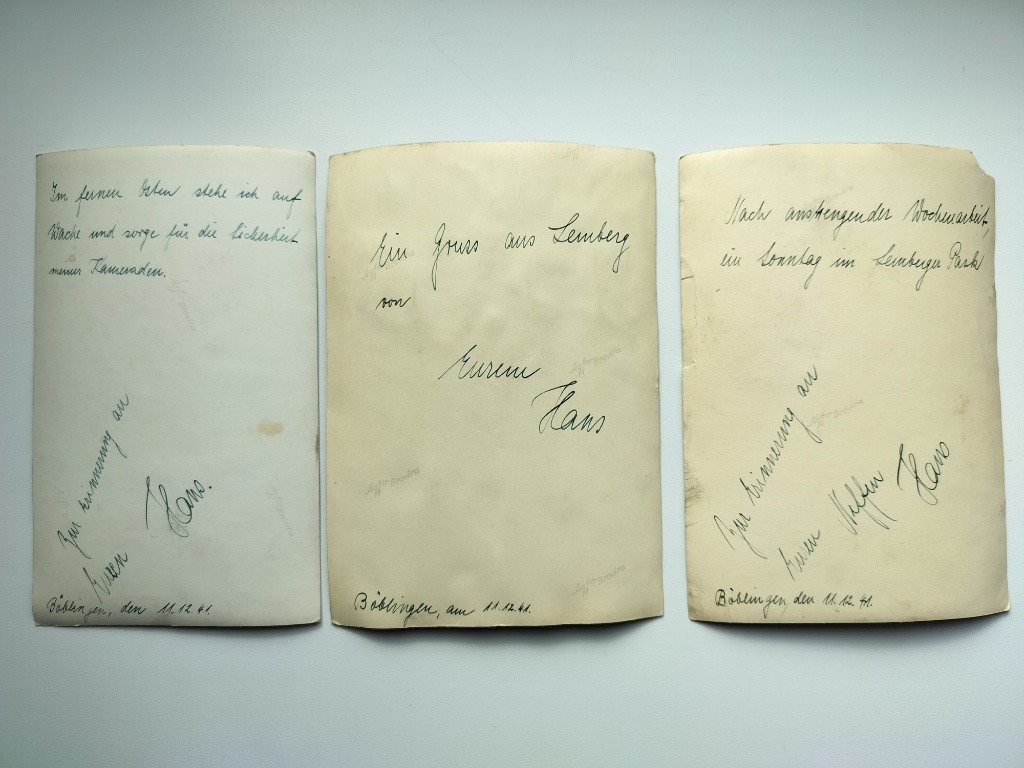 Im fernen Osten stehe ich auf
Wache und sorge für die Sicherheit
meiner Kameraden.
Zur Erinnerung an
Euren
Hans.
Böblingen, den 11.12.41.
Ein Gruss aus Lemberg
von
Eurem
Hans
Agfa Brovira
Agfa Brovira
Agfa Brovira
Böblingen, am 11.12.41.
Nach anstrengender Wochenarbeit,
ein Sonntag im Lemberger Park
Zur Erinnerung an
Euren Neffen Hans
Agfa Brovira
Böblingen den 11.12.41.